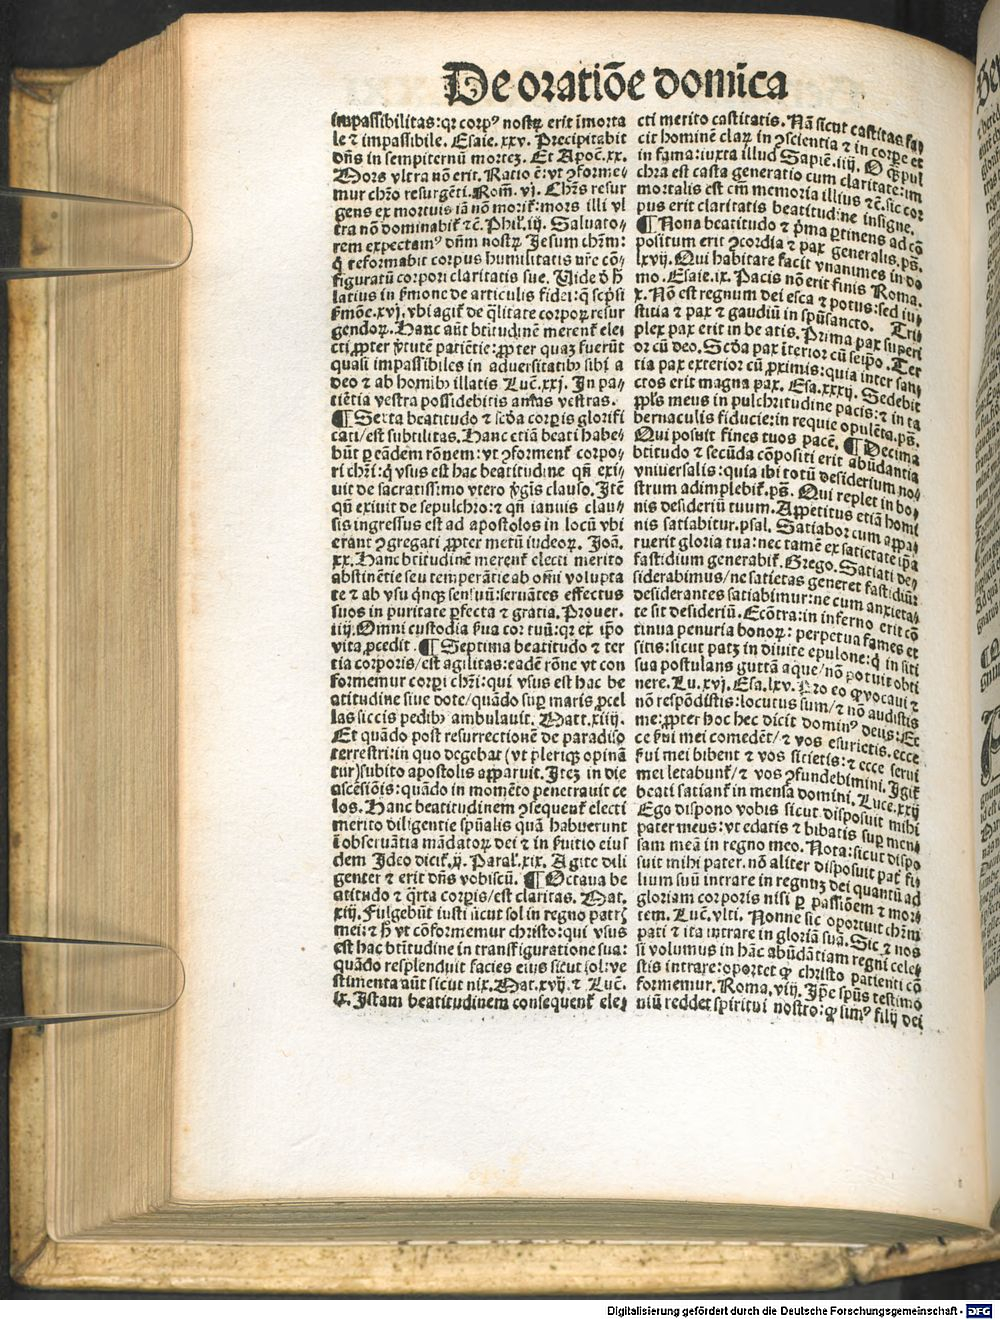 De oratiōe domīca
impassibilitas: qꝛ corpꝰ nostꝝ erit īmorta
le ⁊ impassibile. Esaie. xxv. Precipitabit
dn̄s in sempiternū morteꝫ. Et Apoc̄. xx.
Mors vltra nō erit. Ratio ē: vt ꝯforme⸗
mur chr̄o resurgēti. Rom̄. vj. Chr̄s resur
gens ex mortuis iā nō moriť: mors illi vl
tra nō dominabiť ⁊c̄. Phil̓. iij. Saluato⸗
rem expectamꝰ dn̄m nostꝝ Jesum chr̄m:
q̇ reformabit corpus humilitatis nr̄e cō⸗
figuratū corpori claritatis sue. Uide ď ħ
latius in ẜmone de articulis fidei: q̄ scp̄si
ẜmōe. xvj. vbi agiť de q̄litate corpoꝝ resur
gendoꝝ. Hanc aūt btitudinē merenť elei
cti ꝓpter v̓tutē patiētie: ꝓpter quaꝫ fuerūt
quasi impassibiles in adversitatibꝰ sibi a
deo ⁊ ab homibꝰ illatis Luc̄. xxj. In pa⸗
tiētia vestra possidebitis aīas vestras.
¶ Sexta beatitudo ⁊ scďa corꝑis glorifi
cati/est subtilitas. Hanc etiā beati habe⸗
būt ꝑ eādem rōnem: vt ꝯformenť corpo⸗
ri chr̄i: q̇ vsus est hac beatitudine qn̄ exi⸗
uit de sacratissimo vtero v̓gīs clauso. Itē
qn̄ exiuit de sepulchro: ⁊ qn̄ ianuis clau⸗
sis ingressus est ad apostolos in locū vbi
erant ꝯgregati ꝓpter metū iudeoꝝ. Joā.
xx. Hanc btitudinē merenť electi merito
abstinētie seu temperātie ab om̄i volupta
te ⁊ ab vsu q̇nqꝫ sensuū: seruātes effectus
suos in puritate ꝑfecta ⁊ gratia. Prouer.
iiij. Omni custodia ẜua cor tuū: qꝛ ex ip̄o
vita ꝓcedit. ¶ Septima beatitudo ⁊ ter
tia corporis/est agilitas: eadē rōne vt con
formemur corꝑi chr̄i: qui vsus est hac be
atitudine siue dote/quādo suꝑ maris ꝓcel
las siccis pedibꝰ ambulauit. Matt. xiiij.
Et quādo post resurrectionē de paradiso
terrestri: in quo degebat (vt pleriqꝫ opinā
tur) subito apostolis apparuit. Iteꝫ in die
ascēsiōis: quādo in momēto penetrauit ce
los. Hanc beatitudinem ꝯsequenť electi
merito diligentie spūalis quā habuerunt
ī obseruātia mādatoꝝ dei ⁊ in ẜuitio eius
dem Ideo diciť. ij. Paral̓. xix. Agite dili
genter ⁊ erit dn̄s vobiscū. ¶ Octaua be
atitudo ⁊ q̄rta corꝑis/est claritas. Mat.
xiij. Fulgebūt iusti sicut sol in regno patrꝭ
mei: ⁊ ħ vt cōformemur christo: qui vsus
est hac btitudine in transfiguratione sua:
quādo resplenduit facies eius sicut sol: ve
stimenta aūt sicut nix. Mat. xvij. ⁊ Luc̄.
ix. Istam beatitudinem consequenť ele⸗
cti merito castitatis. Nā sicut castitas fa⸗
cit hominē claꝝ in ꝯscientia ⁊ in corꝑe et
in fama: iuxta illud Sapiē. iiij. O q̄ꝫ pul
chra est casta generatio cum claritate: im
mortalis est em̄ memoria illius ⁊c̄. sic cor
pus erit claritatis beatitudine insigne.
¶ Nona beatitudo ⁊ p̄ma ꝑtinens ad cō
positum erit ꝯcordia ⁊ pax generalis. pš.
lxvij. Qui habitare facit vnanimes in do
mo. Esaie. ix. Pacis nō erit finis Roma.
x. Nō est regnum dei esca ⁊ potus: sed iu⸗
stitia ⁊ pax ⁊ gaudiū in spūsancto. Tri⸗
plex pax erit in beatis. Prima pax superi
or cū deo. Scďa pax īterior cū seip̄o. Ter
tia pax exterior cū ꝓximis: quia inter san⸗
ctos erit magna pax. Esa. xxxij. Sedebit
ppl̓s meus in pulchritudine pacis: ⁊ in ta
bernaculis fiducie: in requie opulēta. pš.
Qui posuit fines tuos pacē. ¶ Decima
btitudo ⁊ secūda cōpositi erit abūdantia
vniuersalis: quia ibi totū desiderium no⸗
strum adimplebiť. pš. Qui replet in bo⸗
nis desideriū tuum. Appetitus etiā homi
nis satiabitur. psal. Satiabor cum appa⸗
ruerit gloria tua: nec tamē ex satietate ip̄a
fastidium generabiť. Grego. Satiati de⸗
siderabimus/ne satietas generet fastidiū:
desiderantes satiabimur: ne cum anxieta⸗
te sit desideriū. Ecōtra: in inferno erit cō
tinua penuria bonoꝝ: perpetua fames et
sitis: sicut patꝫ in diuite epulone: q̇ in siti
sua postulans guttā aque/nō potuit obti
nere. Lu. xvj. Esa. lxv. Pro eo ꝙ vocaui ⁊
nō respōdistis: locutus sum/⁊ nō audistis
me: ꝓpter hoc hec dicit dominꝰ deus: Ec
ce ẜui mei comedēt/⁊ vos esurietis. ecce
ẜui mei bibent ⁊ vos sitietis: ⁊ ecce serui
mei letabunť/⁊ vos ꝯfundebimini. Igiť
beati satianť in mensa domini. Luce. xxij
Ego dispono vobis sicut disposuit mihi
pater meus: vt edatis ⁊ bibatis suꝑ men⸗
sam meā in regno meo. Nota: sicut dispo
suit mihi pater. nō aliter disposuit pať fi⸗
lium suū intrare in regnuꝫ dei quantū ad
gloriam corporis nisi ꝑ passiōem ⁊ mor⸗
tem. Luc̄. vlti. Nonne sic oportuit chr̄m
pati ⁊ ita intrare in gloriā suā. Sic ⁊ nos
si volumus in hāc abūdātiam regni cele⸗
stis intrare: oportet ꝙ christo patienti cō
formemur. Roma. viij. Ip̄e spūs testimo
niū reddet spiritui nostro: ꝙ simꝰ filij dei
Digitalisierung gefördert durch die Deutsche Forschungsgemeinschaft - DFG